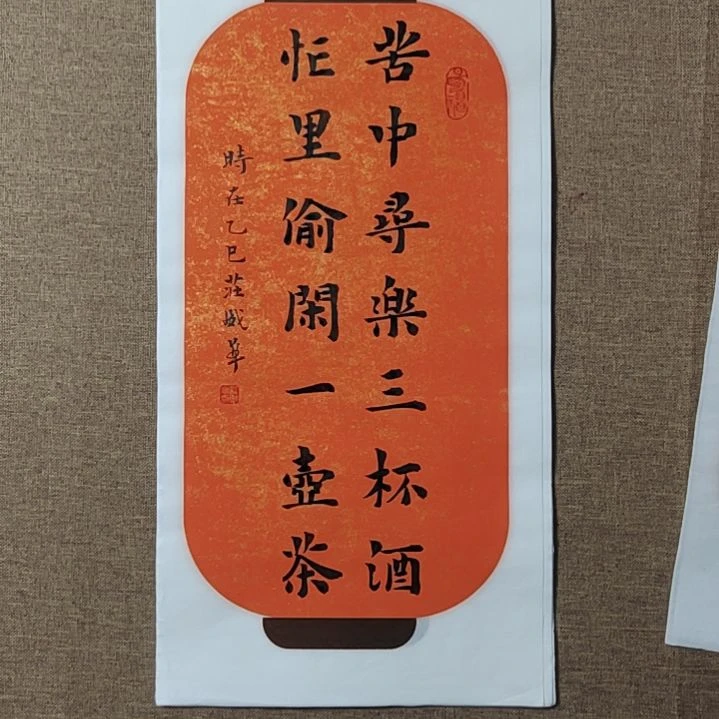 苦中尋樂三杯酒
忙里偷閑一壺茶
時在乙巳莊成華